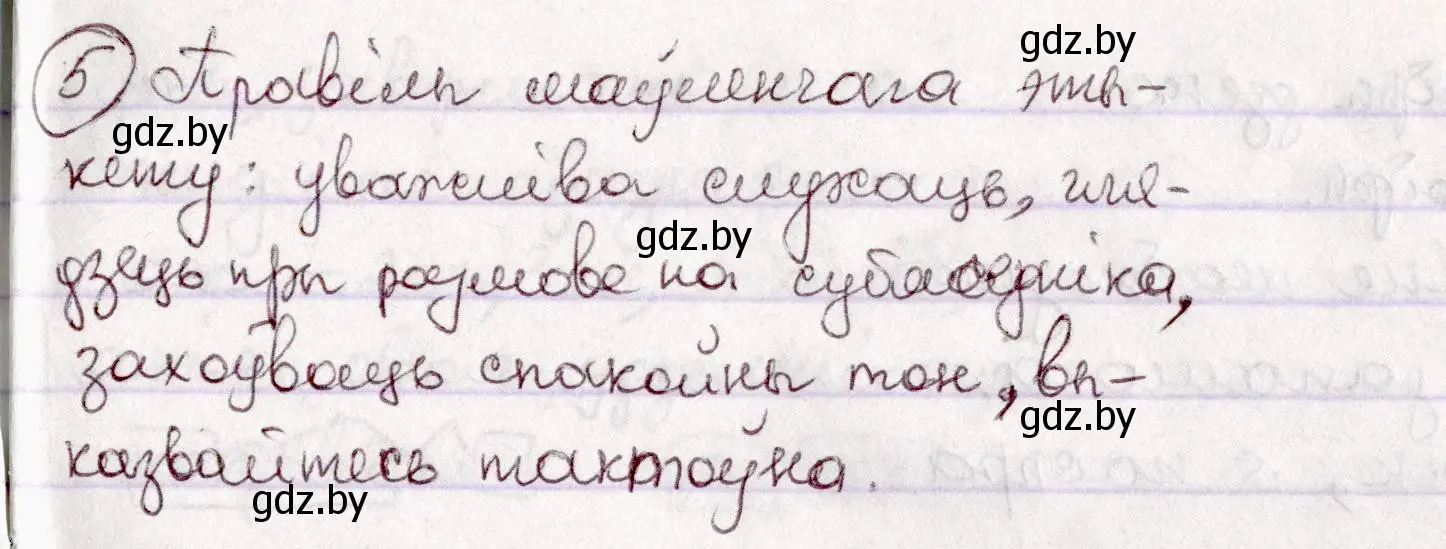 5 Правілы маўленчага эты-
кету: уважліва слухаць, гля-
дзець пры размове на субяседніка,
захоўваць спакойны тон, вы-
казвайтесь тактоўна.
gdz.by
gdz.by
gdz.by
gdz.by
gdz.by